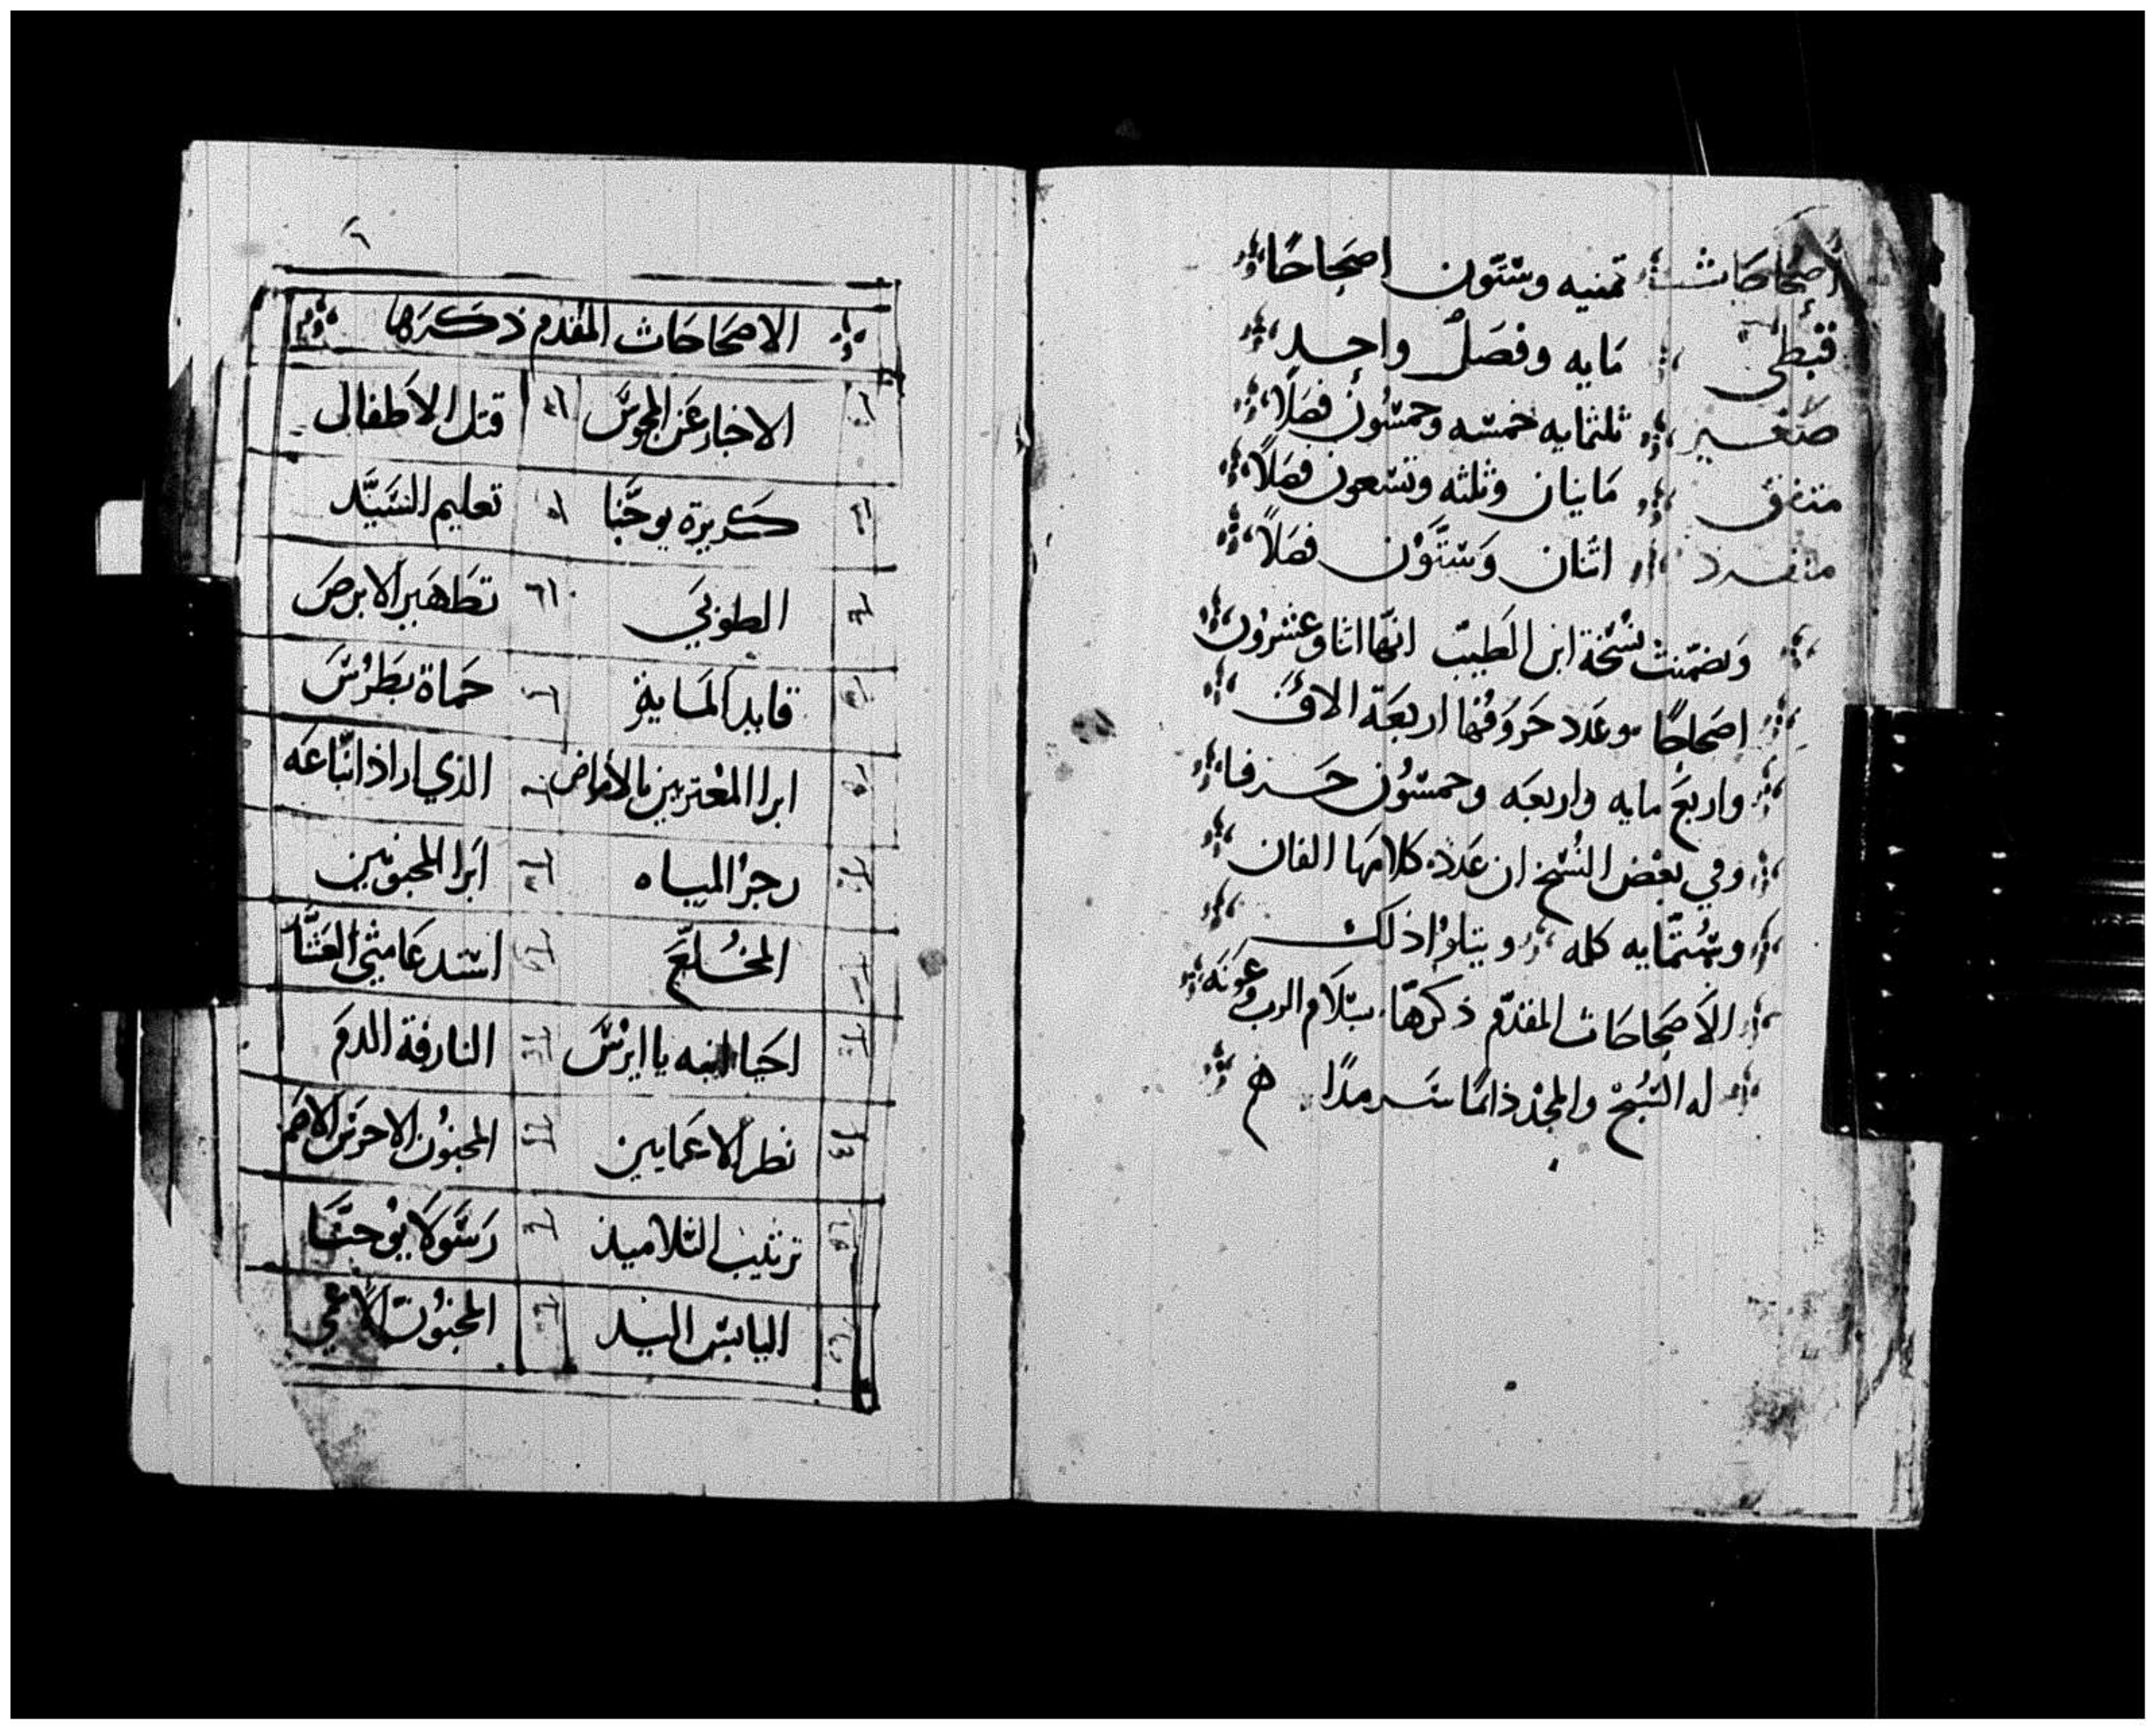 اصحاحات ثمنيه وستون اصحاحًا
قبطي مايه وفصل واحد
صغير ثلثمايه خمسه وخمسون فصلاً
متفق مايتان وثلثه وتسعون فصلاً
منفرد اثنان وستون فصلاً
وتضمنت نسخة ابن الطيب انها اثنا وعشرون
اصحاحًا وعدد حروفها اربعة الاف
واربع مايه واربعه وخمسون حرفا
وفي بعض النسخ ان عدد كلامها الفان
وستمايه كلمه ويتلوا ذلك
الاصحاحات المقدم ذكرها بسلام الرب وعونه
له السبح والمجد دائمًا سرمدًا
الاصحاحات المقدم ذكرها
الاخبار عن المجوس قتل الاطفال
كريزة يوحنا تعليم السيد
الطوبي تطهير الابرص
قايد الماية حماة بطرس
ابرا المعتريين بالأمراض الذي اراد اتباعه
زجر المياه ابرا المجنونين
المخلع استدعا متي العشار
احيا ابنه ياايرس النازفة الدم
نظر الاعمايين المجنون الاخرس الاصم
ترتيب التلاميذ رسولا يوحنا
اليابس اليد المجنون الاعمي